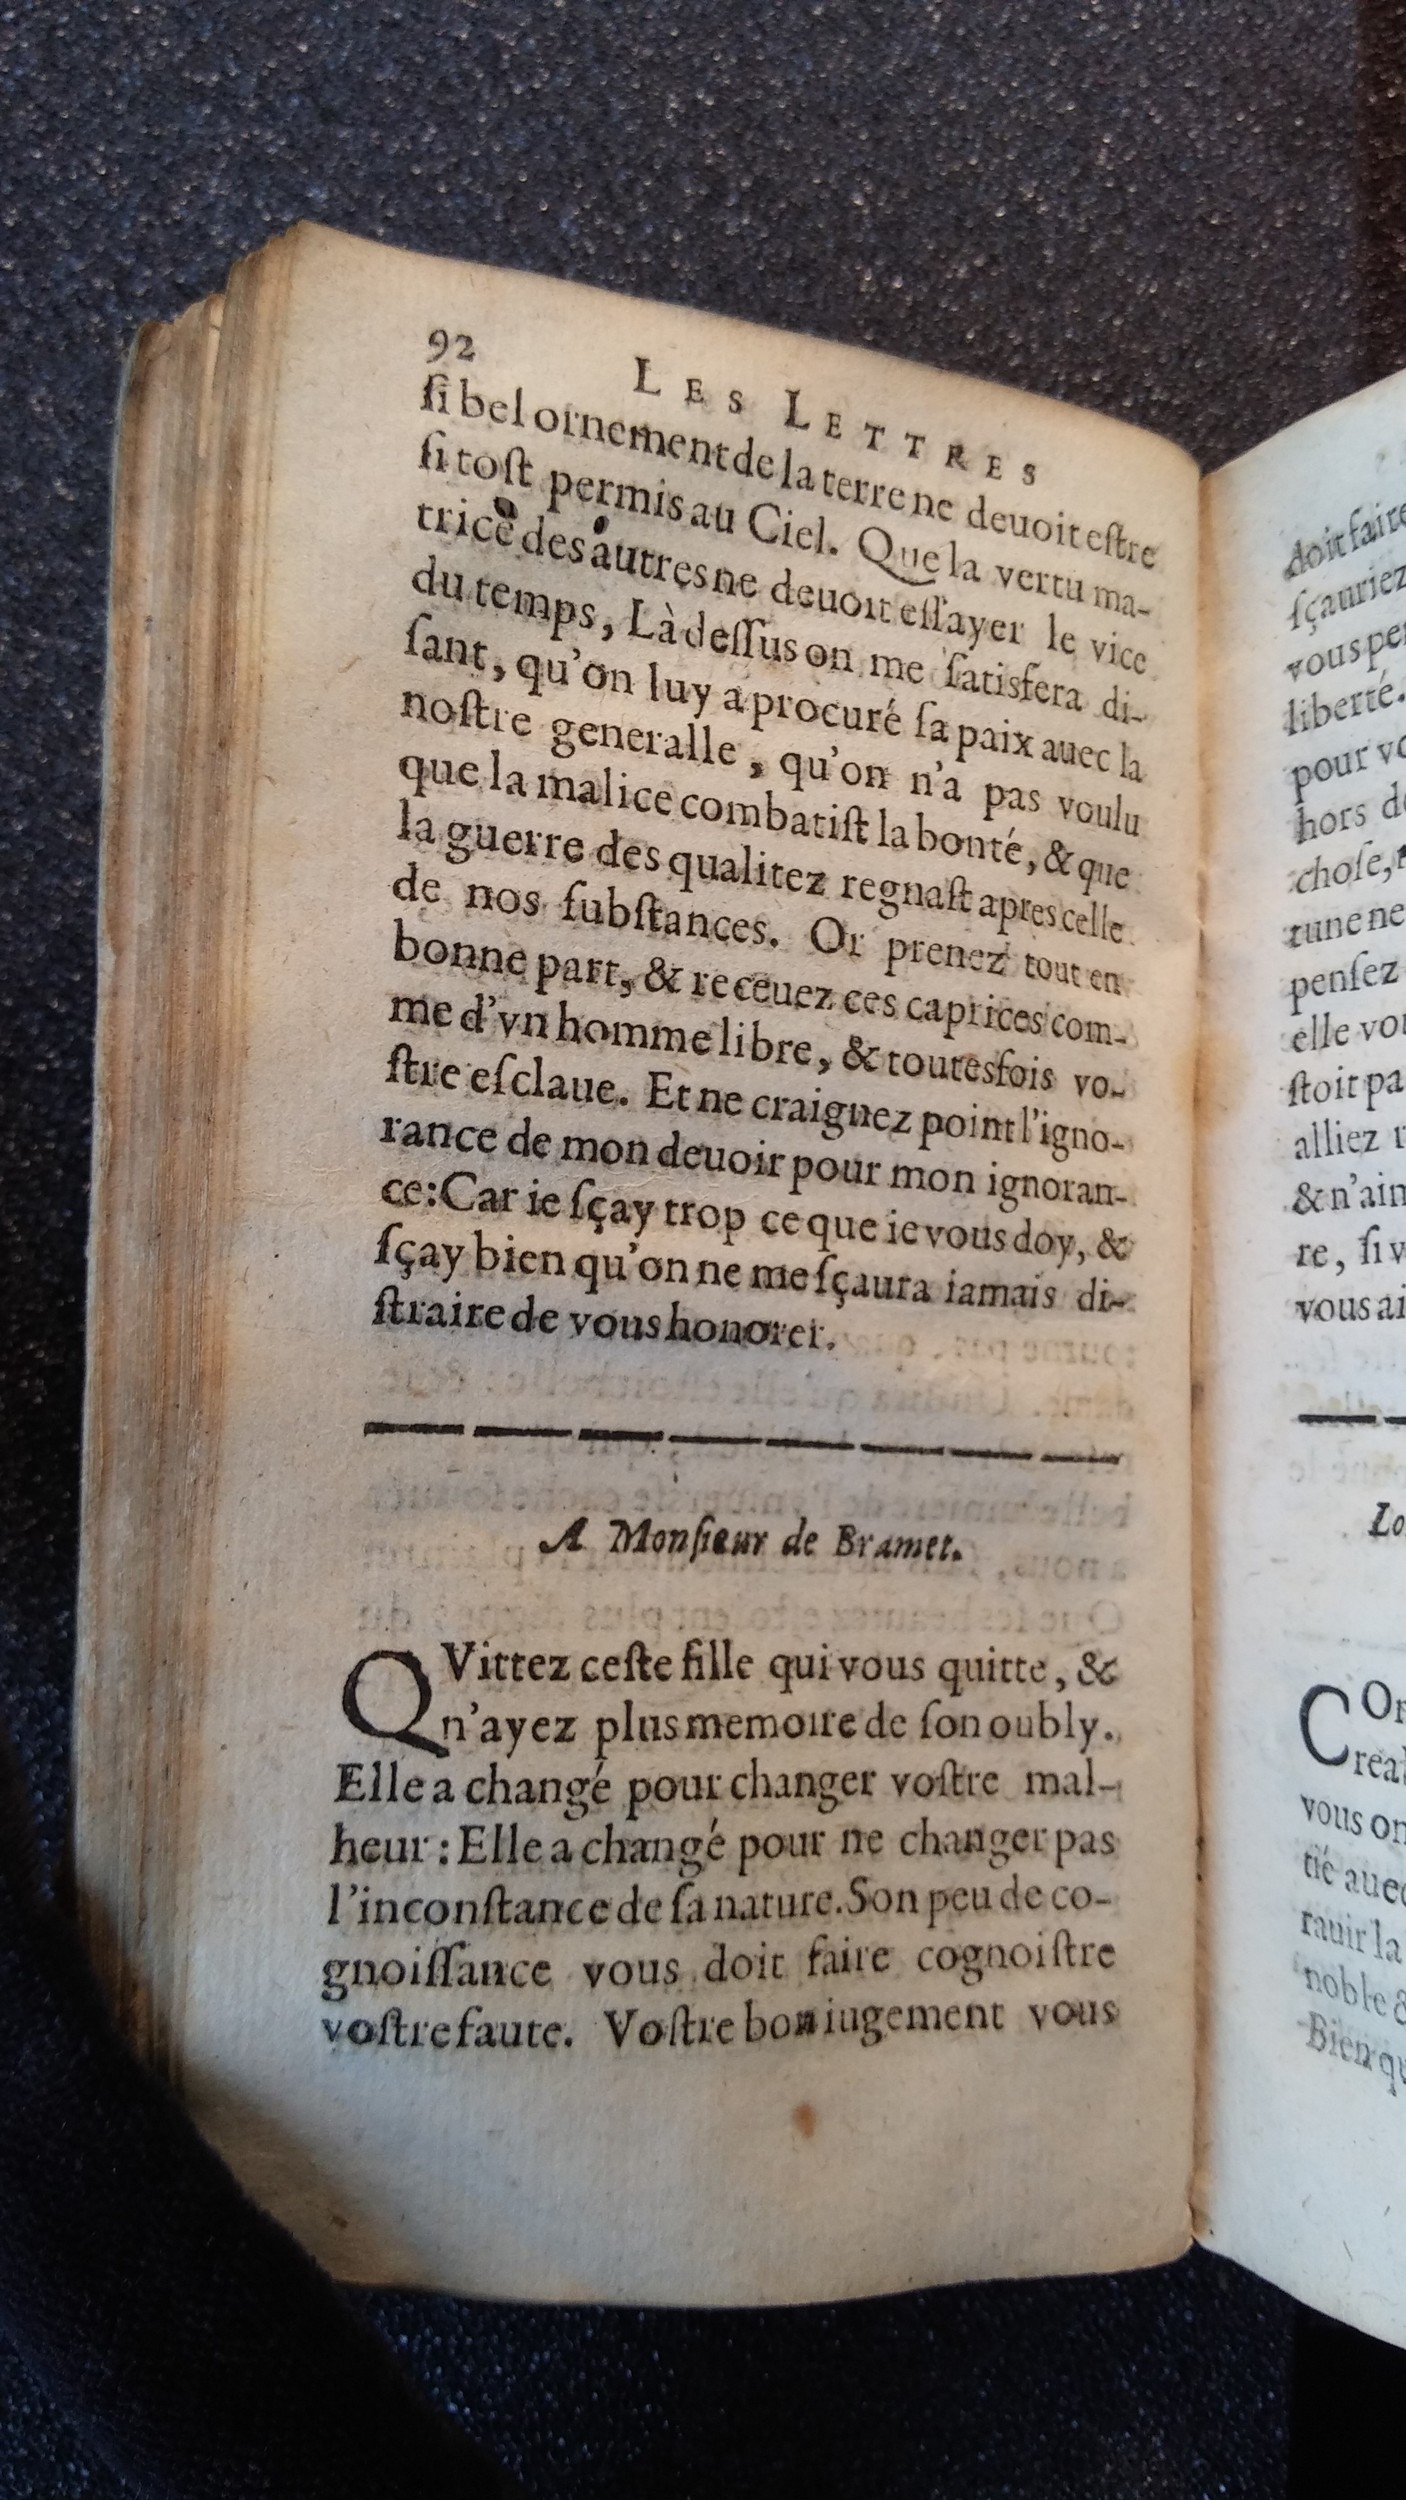 92 LES LETTRES
ſi bel ornement de la terre ne deuoit eſtre
ſi toſt permis au Ciel. Que la vertu ma-
trice des autres ne deuoit eſſayer le vice
du temps, Là deſſus on me ſatisfera di-
ſant, qu'on luy a procuré ſa paix auec la
noſtre generalle, qu'on n'a pas voulu
que la malice combatiſt la bonté, & que
la guerre des qualitez regnaſt apres celle
de nos ſubſtances. Or prenez tout en
bonne part, & receuez ces caprices com-
me d'vn homme libre, & toutesfois vo-
ſtre eſclaue. Et ne craignez point l'igno-
rance de mon deuoir pour mon ignoran-
ce: Car ie ſçay trop ce que ie vous doy, &
ſçay bien qu'on ne me ſçaura iamais di-
ſtraire de vous honorer.
A Monſieur de Bramet.
QVittez ceſte fille qui vous quitte, &
n'ayez plus memoire de ſon oubly.
Elle a changé pour changer voſtre mal-
heur: Elle a changé pour ne changer pas
l'inconſtance de ſa nature. Son peu de co-
gnoiſſance vous doit faire cognoiſtre
voſtre faute. Voſtre bon iugement vous
doit faire
ſçauriez
vous
liberté.
pour
hors
choſe,
tune ne
penſez
elle
ſtoit
alliez
&
re, ſi
vous
C
vous
tié
rauir la
noble
Bien